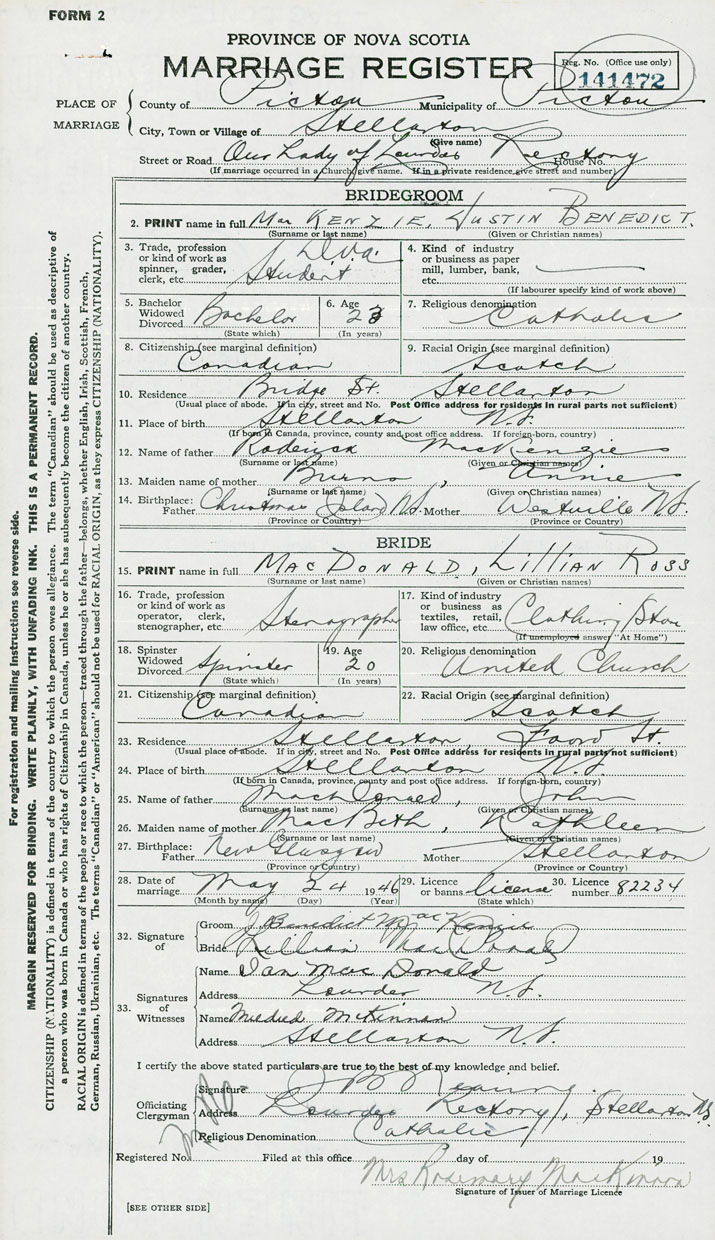 FORM 2
PROVINCE OF NOVA SCOTIA
MARRIAGE REGISTER
Reg. No. (Office use only)
141472
PLACE OF MARRIAGE
County of Pictou Municipality of Pictou
City, Town or Village of Stellarton
(Give name)
Street or Road Our Lady of Lourdes Rectory House No.
(If marriage occurred in a Church give name. If in a private residence, give street and number)
BRIDEGROOM
2. PRINT name in full MacKENZIE, JUSTIN BENEDICT.
(Surname or last name) (Given or Christian names)
3. Trade, profession or kind of work as spinner, grader, clerk, etc. D.V.A. Student
4. Kind of industry or business as paper mill, lumber, bank, etc.
(If labourer specify kind of work above)
5. Bachelor Widowed Divorced Bachelor
(State which)
6. Age 23
(In years)
7. Religious denomination Catholic
8. Citizenship (see marginal definition) Canadian
9. Racial Origin (see marginal definition) Scotch
10. Residence Bridge St. Stellarton
(Usual place of abode. If in city, street and No. Post Office address for residents in rural parts not sufficient)
11. Place of birth Stellarton N.S.
(If born in Canada, province, county and post office address. If foreign-born, country)
12. Name of father Roderick MacKenzie
(Surname or last name) (Given or Christian names)
13. Maiden name of mother Burns, Annie
(Surname or last name) (Given or Christian names)
14. Birthplace: Father Christmas Island N.S. Mother Westville N.S.
(Province or Country) (Province or Country)
BRIDE
15. PRINT name in full MACDONALD, LILLIAN ROSS
(Surname or last name) (Given or Christian names)
16. Trade, profession or kind of work as operator, clerk, stenographer, etc. Stenographer
17. Kind of industry or business as textiles, retail, law office, etc. Clothing Store
(If unemployed answer "At Home")
18. Spinster Widowed Divorced Spinster
(State which)
19. Age 20
(In years)
20. Religious denomination United Church
21. Citizenship (see marginal definition) Canadian
22. Racial Origin (see marginal definition) Scotch
23. Residence Stellarton, Foord St.
(Usual place of abode. If in city, street and No. Post Office address for residents in rural parts not sufficient)
24. Place of birth Stellarton N.S.
(If born in Canada, province, county and post office address. If foreign-born, country)
25. Name of father MacDonald, John
(Surname or last name) (Given or Christian names)
26. Maiden name of mother MacBeth, Kathleen
(Surname or last name) (Given or Christian names)
27. Birthplace: Father New Glasgow Mother Stellarton
(Province or Country) (Province or Country)
28. Date of marriage May 24 1946
(Month by name) (Day) (Year)
29. Licence or banns license
(State which)
30. Licence number 82234
32. Signature of
Groom J. Benedict MacKenzie
Bride Lillian MacDonald
33. Signatures of Witnesses
Name Ian MacDonald
Address Lourdes N.S.
Name Mildred McKinnon
Address Stellarton N.S.
I certify the above stated particulars are true to the best of my knowledge and belief.
Officiating Clergyman
Signature
Address Lourdes Rectory, Stellarton N.S.
Religious Denomination Catholic
Registered No. Filed at this office day of 19
Mrs Rosemary MacKinnon
Signature of Issuer of Marriage Licence
[SEE OTHER SIDE]
For registration and mailing instructions see reverse side.
MARGIN RESERVED FOR BINDING. WRITE PLAINLY, WITH UNFADING INK. THIS IS A PERMANENT RECORD.
CITIZENSHIP (NATIONALITY) is defined in terms of the country to which the person owes allegiance. The term "Canadian" should be used as descriptive of
a person who was born in Canada or who has rights of Citizenship in Canada, unless he or she has subsequently become the citizen of another country.
RACIAL ORIGIN is defined in terms of the people or race to which the person—traced through the father—belongs, whether English, Irish, Scottish, French,
German, Russian, Ukrainian, etc. The terms "Canadian" or "American" should not be used for RACIAL ORIGIN, as they express CITIZENSHIP (NATIONALITY).